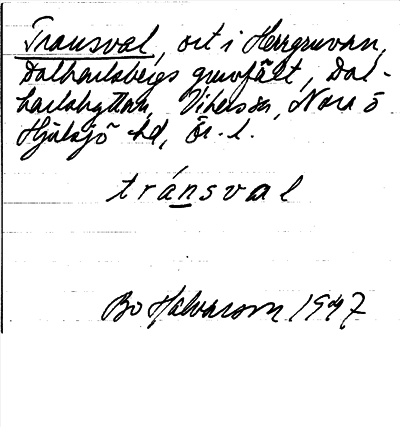 Transval, ort i Herrgruvan,
Dalkarlsbergs gruvfält, Dal-
karlshyttan, Vikers sn, Nora o
Hjulsjö hd, Ör. l.
tránsval
Bo Halvarson 1947